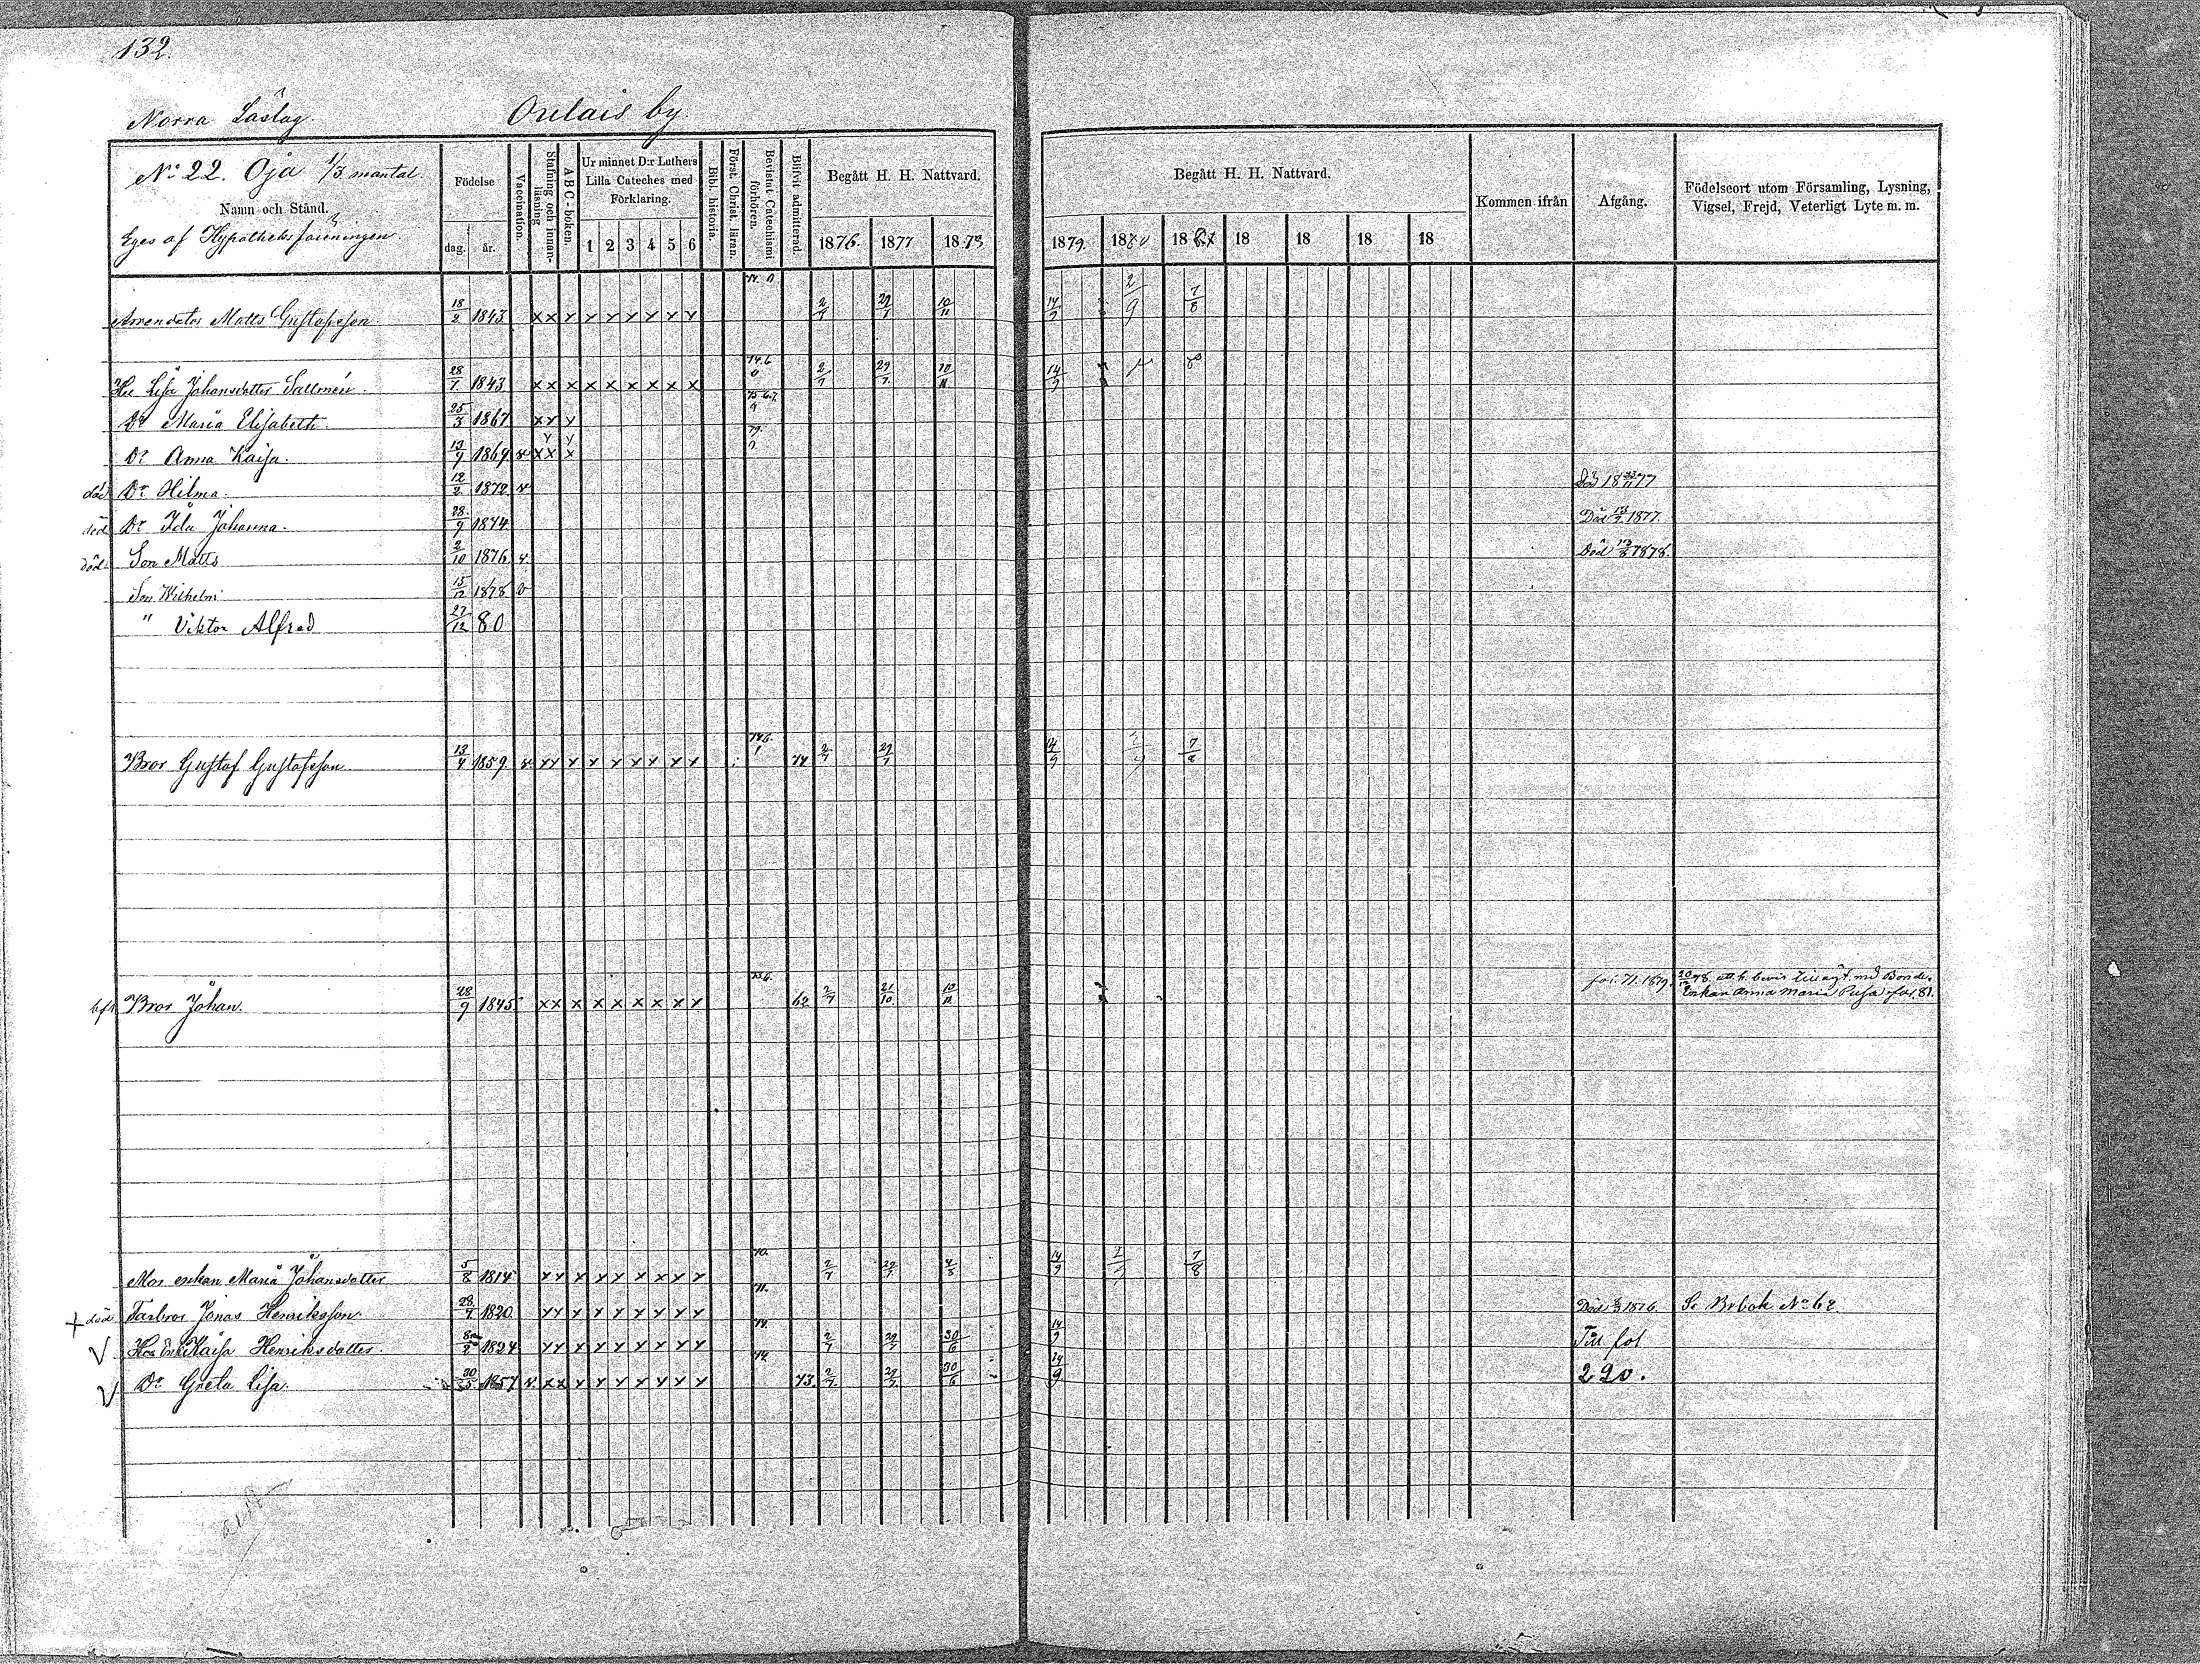 132.
Norra Låslag.
Oulais by.
No 22. Oja 1/3 mantal.
Namn och Stånd.
Eges af Hypotheksföreningen.
Födelse
dag. år.
Vaccination.
Stafning och innanläsning
A B C - boken.
Ur minnet D:r Luthers Lilla Cateches med Förklaring.
1 2 3 4 5 6
Bibl. historia.
Först. Christ. läran.
Bevistat Catechismi förhören.
Blifvit admitterad.
Begått H. H. Nattvard.
1876. 1877 1878
Begått H. H. Nattvard.
1879. 1880 1881 18 18 18 18
Kommen ifrån
Afgång.
Födelseort utom Församling, Lysning, Vigsel, Frejd, Veterligt Lyte m. m.
Arrendator Matts Gustafsson 18/2 1843 x x x x x x x x x 2/7 29/7 10/11 14/9 2/9 7/8
Hu Lisa Johansdotter Sallmén. 28/1 1843 x x x x x x x x x 2/7 29/7 10/11 14/9
Dr Maria Elisabeth. 25/3 1867 x x x
Dr Anna Kaisa. 13/9 1869 v x x x
död Dr Hilma. 12/2 1872 v Död 18 23/11 77
död Dr Ida Johanna. 28/9 1874 Död 13/7 1877.
död Son Matts 2/10 1876 v Död 13/8 1878.
Son Wilhelm 15/12 1878 v
" Viktor Alfred 27/12 80
Bror Gustaf Gustafsson 13/4 1859 v x x x x x x x x x 74 2/7 29/7 14/9 7/8
Bror Johan. 28/9 1845 x x x x x x x x x 62 2/7 21/10 10/11 fol. 71. 1879.
att h. bevis Bonde-
Enkan Anna Maria fol. 81.
Mor enkan Maria Johansdotter 5/8 1814 x x x x x x x x x 70. 2/7 29/7 4/8 14/9 7/8
död Farbror Jonas Henriksson 28/7 1820. x x x x x x x x x 71. Död 1876. Se Br.bok No 62
Hu Enk Kaisa Henriksdotter. 1824 x x x x x x x x x 2/7 29/7 30/6 14/9 Till fol
Dr Greta Lisa. 30/5 1857 v x x x x x x x x x 73. 2/7 29/7 30/6 14/9 220.